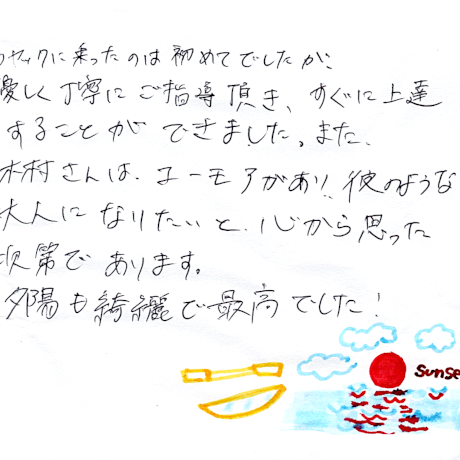 カヤックに乗ったのは初めてでしたが、
優しく丁寧にご指導頂き、すぐに上達
することができました。また、
木村さんは、ユーモアがあり、彼のような
大人になりたいと、心から思った
次第であります。
夕陽も綺麗で最高でした!
sunse